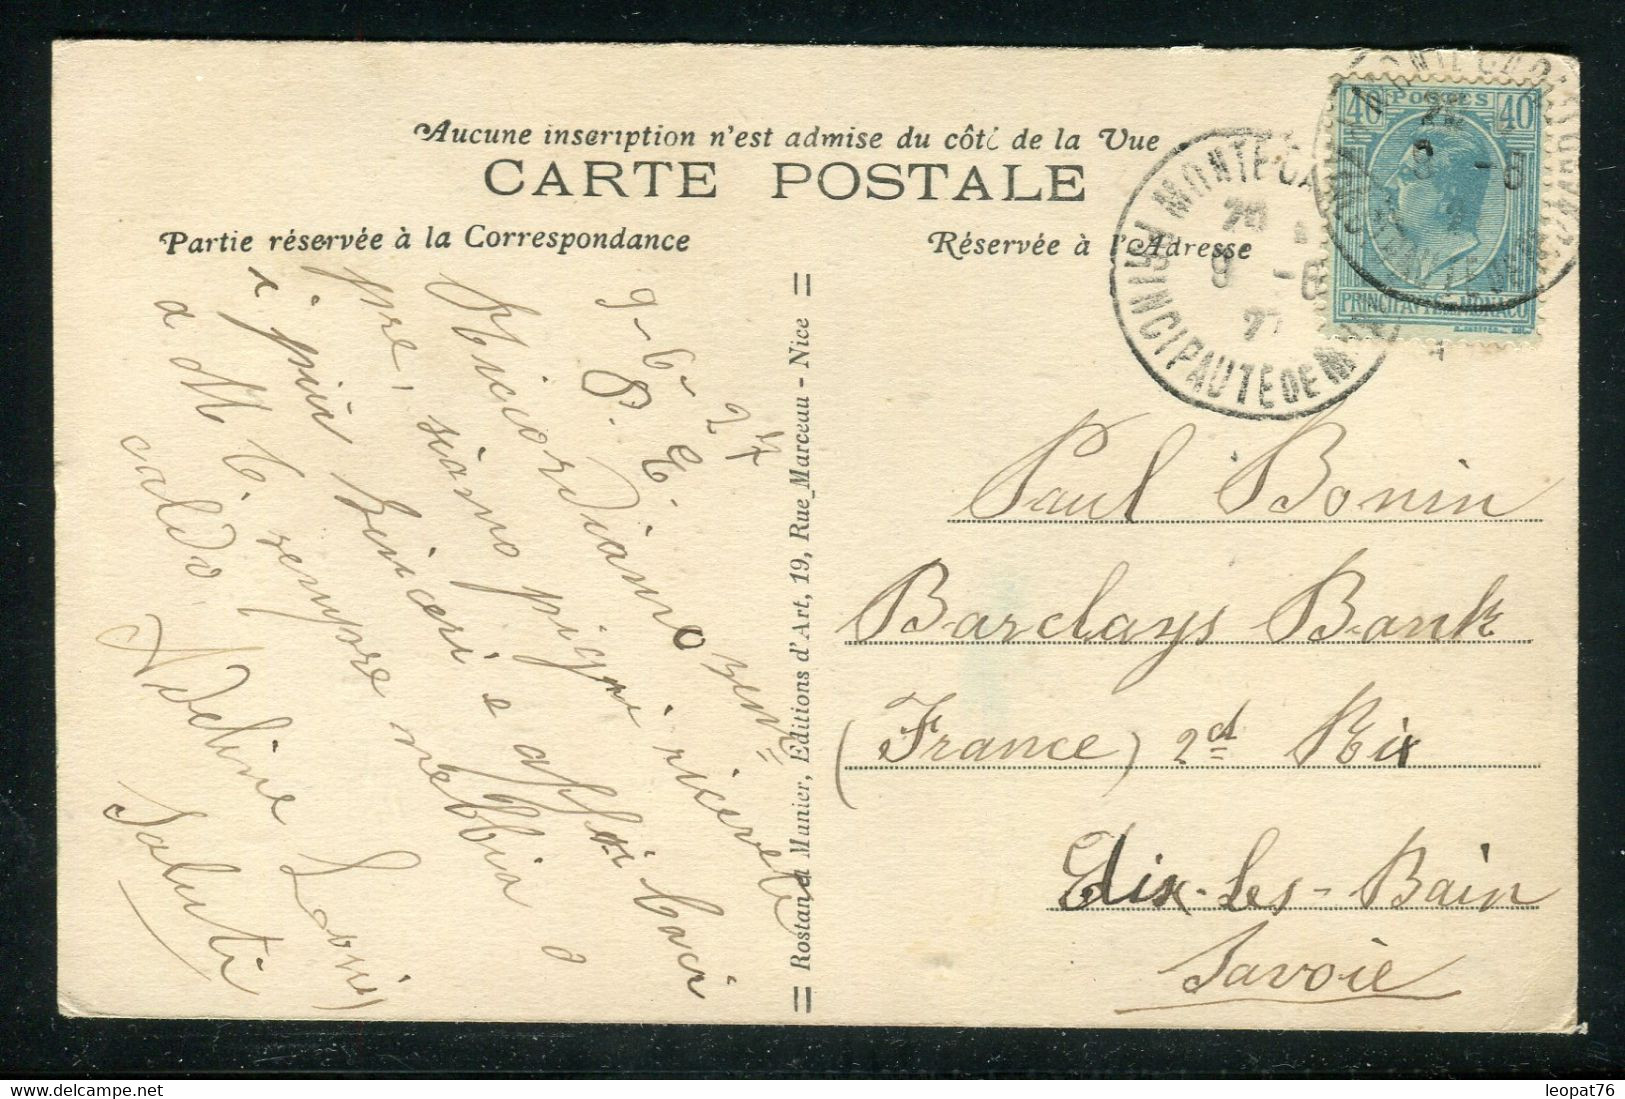 Aucune inscription n'est admise du côté de la Vue
CARTE POSTALE
Partie réservée à la Correspondance
Réservée à l'Adresse
9-6-27
P. E.
Ricordiamo sem=
pre, siamo pigri ricevete
i più sinceri e affti baci
a M C. sempre nebbia o
caldo.
Adeline Louis
Saluti
= Rostan et Munier, Editions d'Art, 19, Rue Marceau - Nice =
MONTE-CARLO
PRINCIPAUTÉ DE
9 -6
27
40 POSTES 40
PRINCIPAUTÉ DE MONACO
Paul Bonin
Barclays Bank
(France) 2d Rix
Aix-Les-Bain
Savoie
leopat76